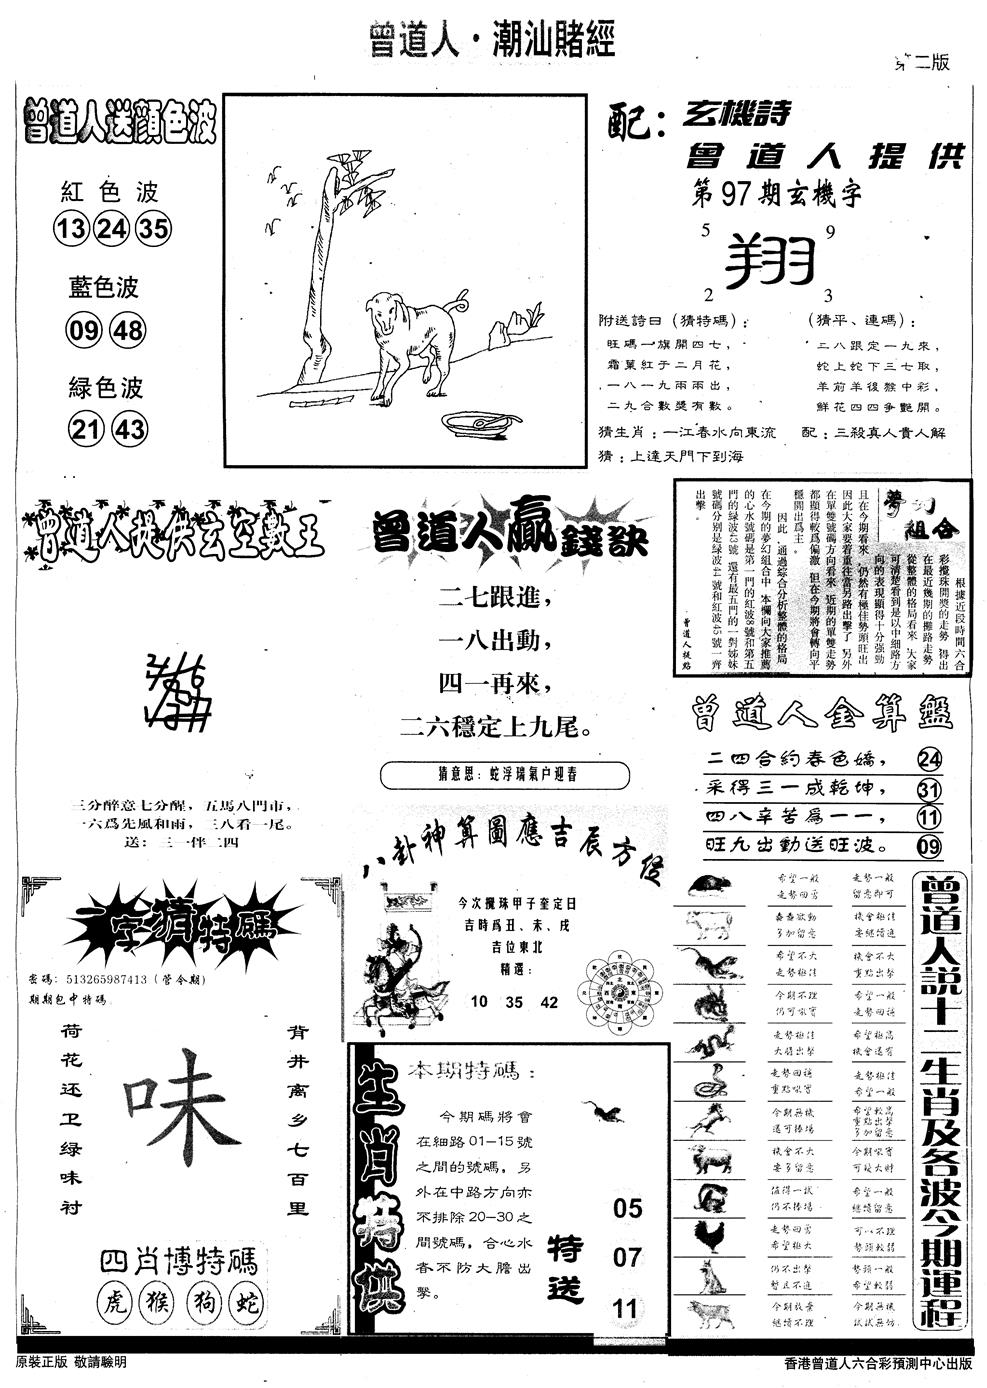 曾道人·潮汕賭經
第二版
曾道人送顏色波
紅色波
13 24 35
藍色波
09 48
綠色波
21 43
配：玄機詩
曾道人提供
第97期玄機字
5 9
翔
2 3
附送詩曰（猜特碼）：
旺碼一旗開四七，
霜葉紅于二月花，
一八一九兩兩出，
二九合數獎有數。
（猜平、連碼）：
二八跟定一九來，
蛇上蛇下三七取，
羊前羊後猴中彩，
鮮花四四爭艷開。
猜生肖：一江春水向東流
配：三殺真人貴人解
猜：上達天門下到海
曾道人提供玄空數王
三分醉意七分醒，五馬八門市，
一六爲先風和雨，三八看一尾。
送：三一伴二四
曾道人贏錢訣
二七跟進，
一八出動，
四一再來，
二六穩定上九尾。
猜意思：蛇浮瑞氣户迎春
夢幻組合
根據近段時間六合
彩攪珠開獎的走勢，得出
在最近幾期的攤路走勢
從整體的格局看來，大家
可清楚看到是以中細路方
向的表現顯得十分強勁
且在今期看來，仍然有極佳勢頭旺出
因此大家要着重往當另路出擊了，另外
在單雙號碼方向看來，近期的單雙走勢
都顯得較爲偏激，但在今期將會轉向平
穩開出爲主。
因此，通過綜合分析整體的格局
在今期的夢幻組合中，本欄向大家推薦
的心水號碼是第一門的紅波8號和第五
門的綠波43號，還有最五門的一對姊妹
號碼分别是綠波44號和紅波45號一齊
出擊。
曾道人提點
曾道人金算盤
二四合約春色嬌， 24
采得三一成乾坤， 31
四八辛苦爲一一， 11
旺九出動送旺波。 09
八卦神算圖應吉辰方位
今次攪珠甲子奎定日
吉時爲丑、未、戌
吉位東北
精選：
10 35 42
一字猜特碼
密碼：513265987413（管令期）
期期包中特碼
荷花还卫绿味衬
味
背井离乡七百里
四肖博特碼
虎 猴 狗 蛇
生肖特供
本期特碼：
今期碼將會
在細路01-15號
之間的號碼，另
外在中路方向亦
不排除20-30之
間號碼，合心水
者不防大膽出
擊。
特送
05
07
11
曾道人説十二生肖及各波今期運程
希望一般 走勢一般
走勢回勇 留意即可
蠢蠢欲動 機會極佳
多加留意 要繼續追
希望不大 機會不大
走勢極佳 重點出擊
今期不理 希望一般
仍可吼實 走勢回穩
走勢極佳 希望極高
大膽出擊 機會還有
走勢回穩 走勢極佳
重點吼實 希望一般
今期無機 希望較高
還可捧場 重點出擊
多加留意
機會不大 今期吼實
要多留意 可校大財
值得一試 希望一般
仍不捧場 繼續留意
走勢回勇 可以不理
希望極大 勢頭較弱
仍不出擊 勢頭一般
暫且不追 希望較弱
今期放棄 今期無機
繼續不理 試試無妨
原裝正版 敬請驗明
香港曾道人六合彩預測中心出版